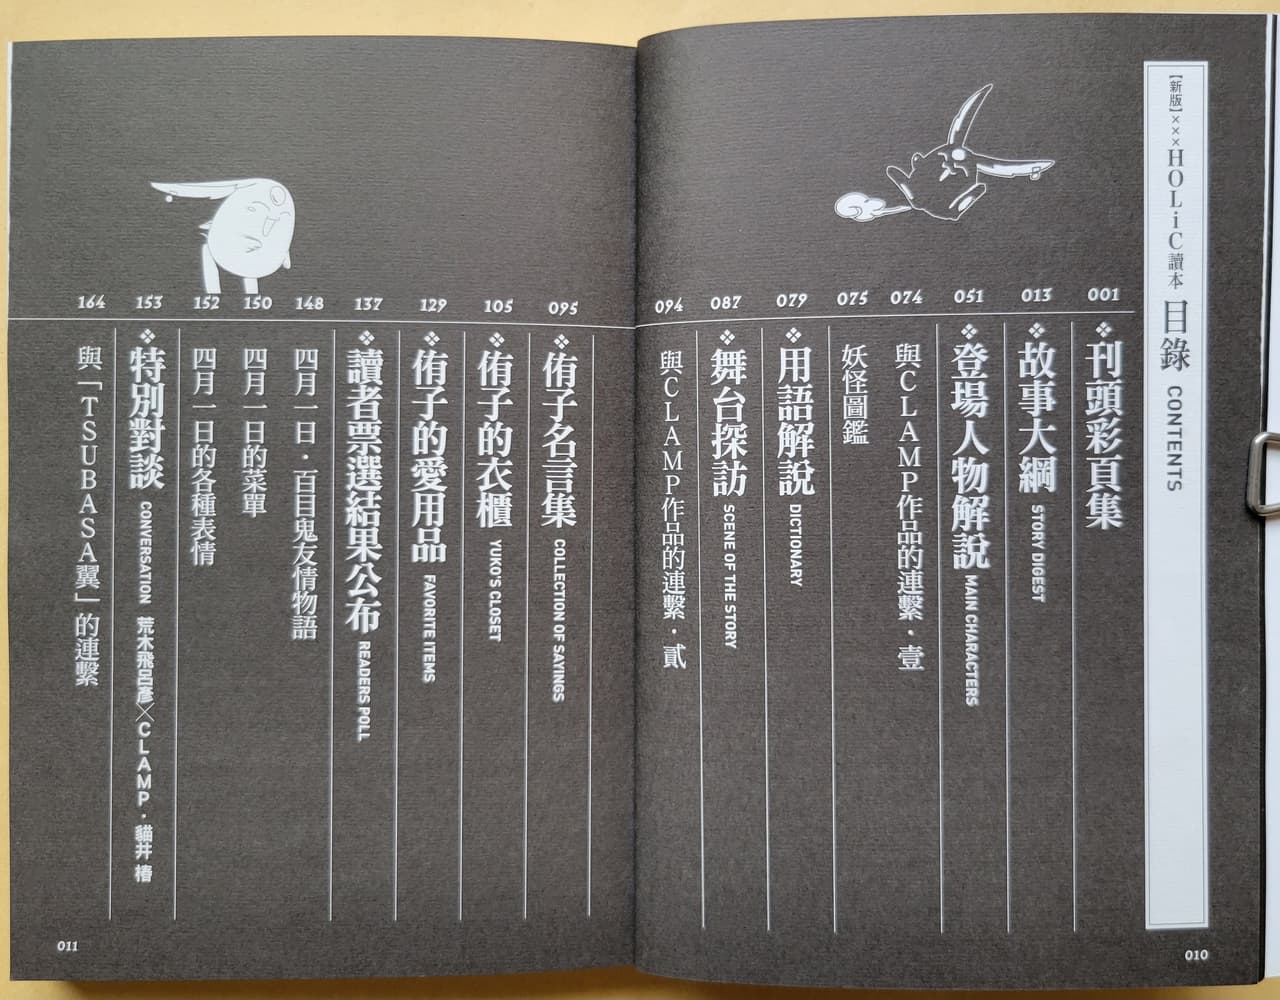 【新版】×××HOLiC讀本 目錄 CONTENTS
001 刊頭彩頁集
013 故事大綱 STORY DIGEST
051 登場人物解說 MAIN CHARACTERS
074 與CLAMP作品的連繫・壹
075 妖怪圖鑑
079 用語解說 DICTIONARY
087 舞台探訪 SCENE OF THE STORY
094 與CLAMP作品的連繫・貳
010
095 侑子名言集 COLLECTION OF SAYINGS
105 侑子的衣櫃 YUKO'S CLOSET
129 侑子的愛用品 FAVORITE ITEMS
137 讀者票選結果公布 READERS POLL
148 四月一日・百目鬼友情物語
150 四月一日的菜單
152 四月一日的各種表情
153 特別對談 CONVERSATION 荒木飛呂彥×CLAMP・貓井 椿
164 與「TSUBASA翼」的連繫
011